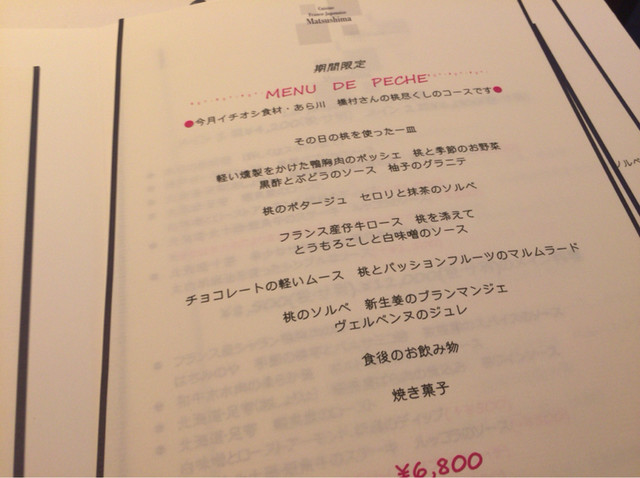 Cuisine
Franco-Japonaise
Matsushima
期間限定
MENU DE PECHE
●今月イチオシ食材・あら川 橋村さんの桃尽くしのコースです●
その日の桃を使った一皿
軽い燻製をかけた鴨胸肉のポッシェ 桃と季節のお野菜
黒酢とぶどうのソース 柚子のグラニテ
桃のポタージュ セロリと抹茶のソルベ
フランス産仔牛ロース 桃を添えて
とうもろこしと白味噌のソース
チョコレートの軽いムース 桃とパッションフルーツのマルムラード
桃のソルベ 新生姜のブランマンジェ
ヴェルベンヌのジュレ
食後のお飲み物
焼き菓子
¥6,800